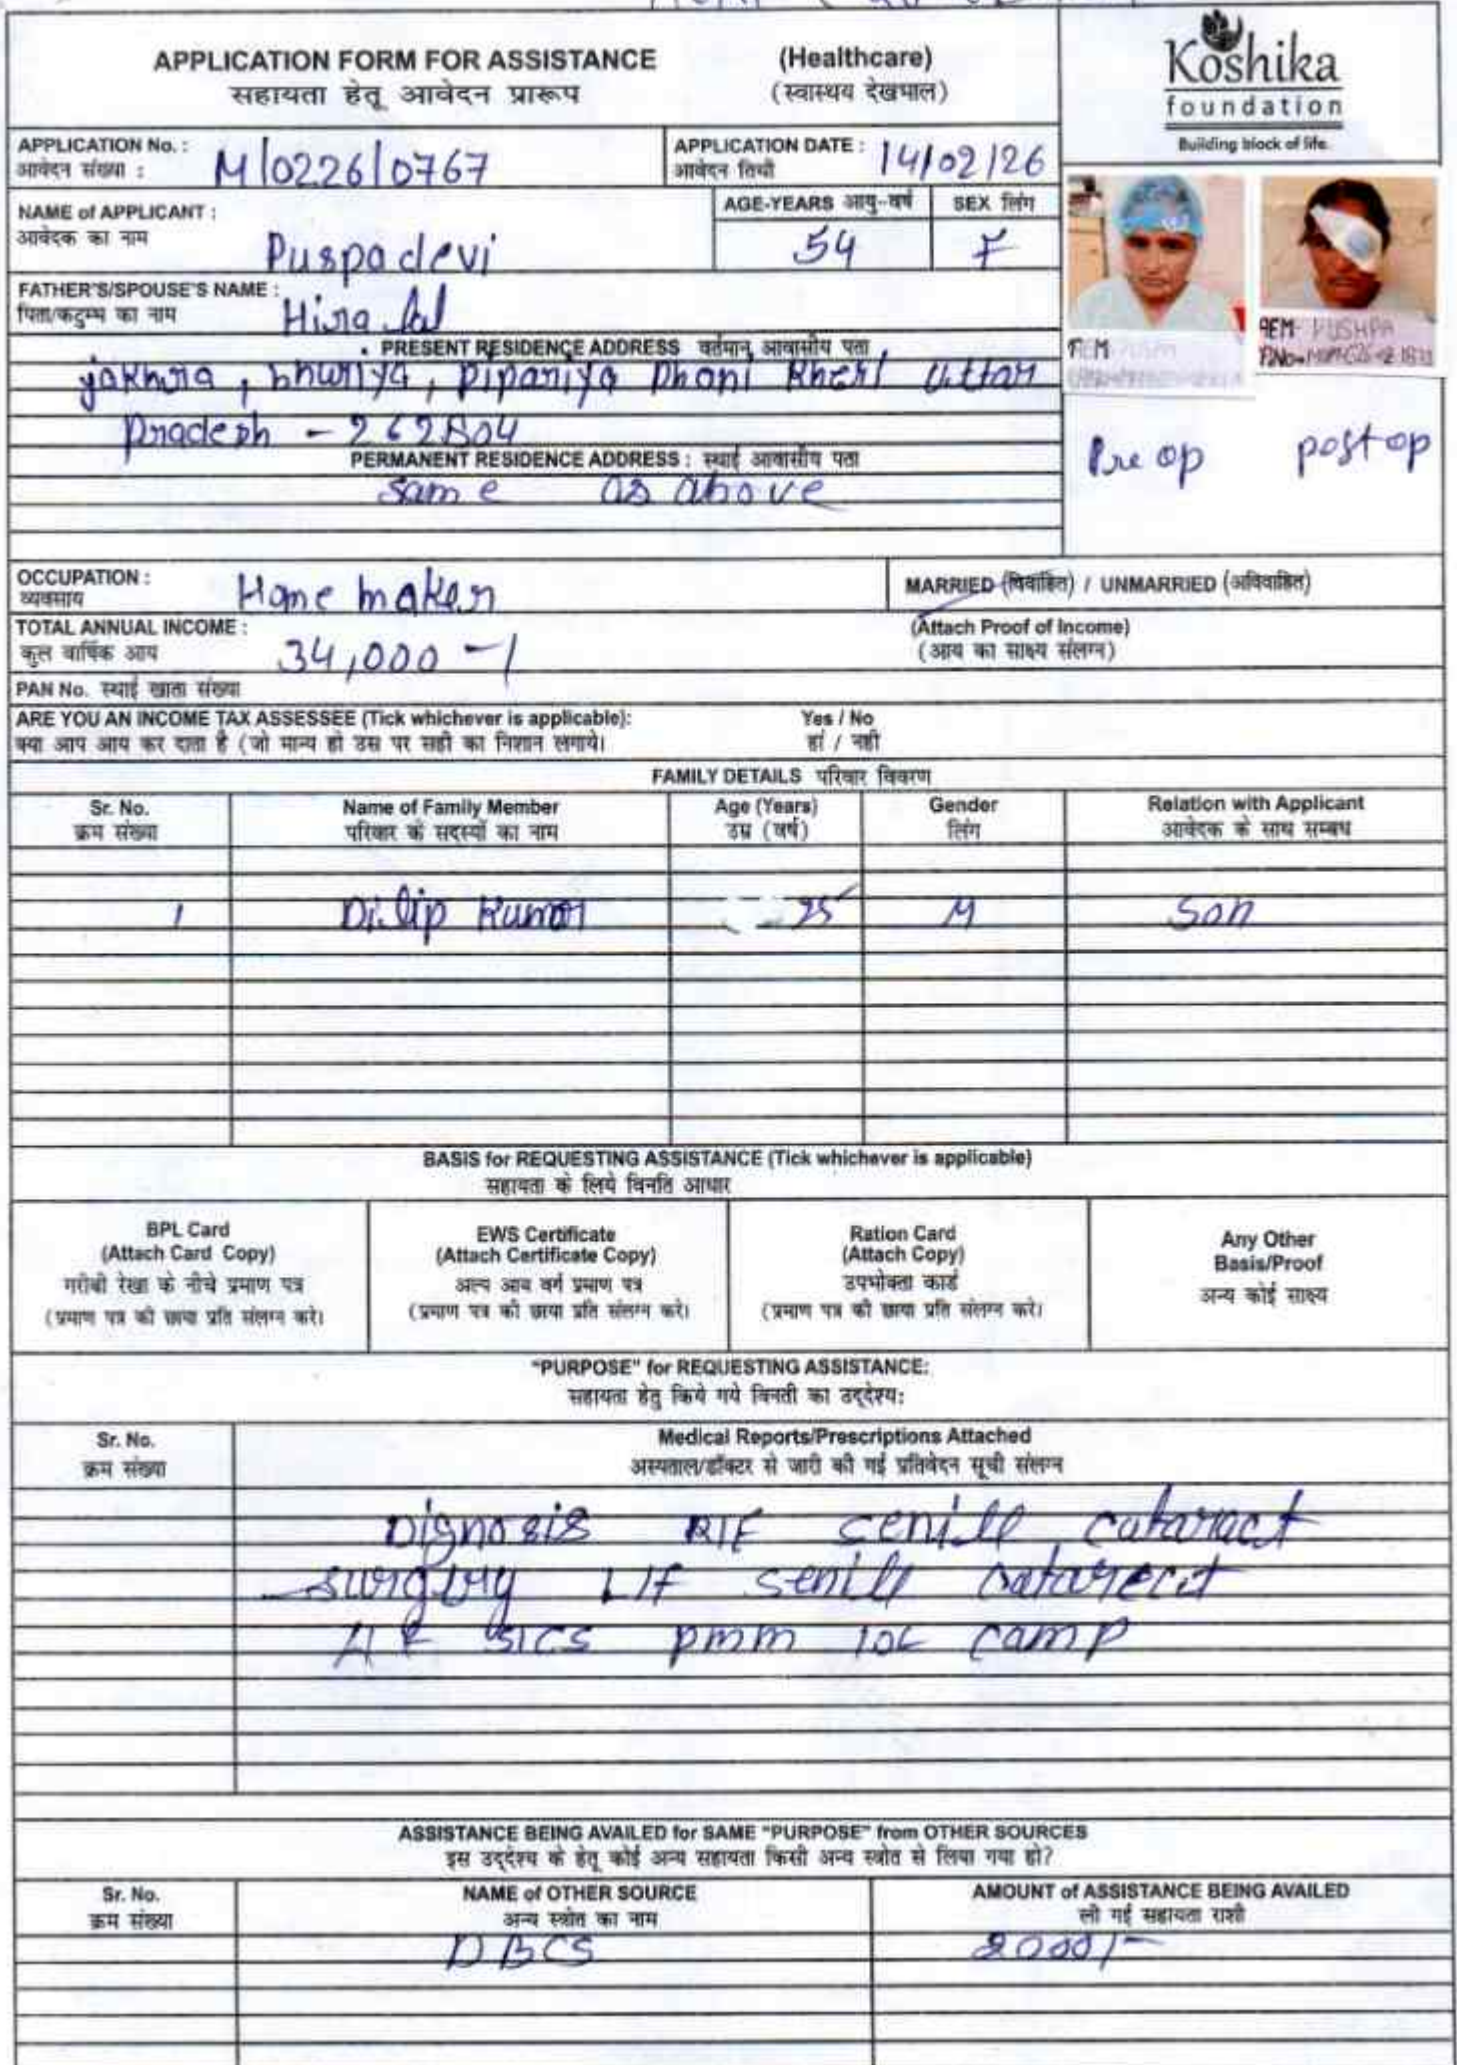 APPLICATION FORM FOR ASSISTANCE (Healthcare)
सहायता हेतू आवेदन प्रारूप (स्वास्थय देखभाल)
Koshika
foundation
Building block of life.
APPLICATION No. : M/0226/0767 APPLICATION DATE : 14/02/26
आवेदन संख्या : आवेदन तिथी
NAME of APPLICANT : AGE-YEARS आयु-वर्ष SEX लिंग
आवेदक का नाम Puspadevi 54 F
FATHER'S/SPOUSE'S NAME :
पिता/कटुम्ब का नाम Hira lal
PRESENT RESIDENCE ADDRESS वर्तमान आवासीय पता
jakhra, bhuriya, Pipariya Dhani Kheri Uttar
Pradesh - 262804
PERMANENT RESIDENCE ADDRESS : स्थाई आवासीय पता
same as above
PEM
PEM PUSHPA
Pre op post op
OCCUPATION :
व्यवसाय Home maker MARRIED (विवाहित) / UNMARRIED (अविवाहित)
TOTAL ANNUAL INCOME : (Attach Proof of Income)
कुल वार्षिक आय 34,000 -/ (आय का साक्ष्य संलग्न)
PAN No. स्थाई खाता संख्या
ARE YOU AN INCOME TAX ASSESSEE (Tick whichever is applicable): Yes / No
क्या आप आय कर दाता है (जो मान्य हो उस पर सही का निशान लगाये। हां / नही
FAMILY DETAILS परिवार विवरण
Sr. No. Name of Family Member Age (Years) Gender Relation with Applicant
क्रम संख्या परिवार के सदस्यों का नाम उम्र (वर्ष) लिंग आवेदक के साथ सम्बध
1 Dilip Kumar 25 M Son
BASIS for REQUESTING ASSISTANCE (Tick whichever is applicable)
सहायता के लिये विनति आधार
BPL Card
(Attach Card Copy)
गरीबी रेखा के नीचे प्रमाण पत्र
(प्रमाण पत्र की छाया प्रति संलग्न करे।
EWS Certificate
(Attach Certificate Copy)
अल्प आय वर्ग प्रमाण पत्र
(प्रमाण पत्र की छाया प्रति संलग्न करे।
Ration Card
(Attach Copy)
उपभोक्ता कार्ड
(प्रमाण पत्र की छाया प्रति संलग्न करे।
Any Other
Basis/Proof
अन्य कोई साक्ष्य
"PURPOSE" for REQUESTING ASSISTANCE:
सहायता हेतु किये गये विनती का उद्देश्य:
Sr. No. Medical Reports/Prescriptions Attached
क्रम संख्या अस्पताल/डॉक्टर से जारी की गई प्रतिवेदन सूची संलग्न
Dignosis RIE senill cataract
surgery LIE senill catarecit
SICS pmm IOL camp
ASSISTANCE BEING AVAILED for SAME "PURPOSE" from OTHER SOURCES
इस उद्देश्य के हेतू कोई अन्य सहायता किसी अन्य स्त्रोत से लिया गया हो?
Sr. No. NAME of OTHER SOURCE AMOUNT of ASSISTANCE BEING AVAILED
क्रम संख्या अन्य स्त्रोत का नाम ली गई सहायता राशी
DBCS 2000/-